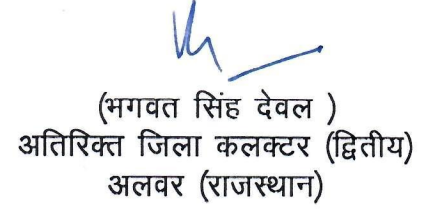 (भगवत सिंह देवल )
अतिरिक्त जिला कलक्टर (द्वितीय)
अलवर (राजस्थान)